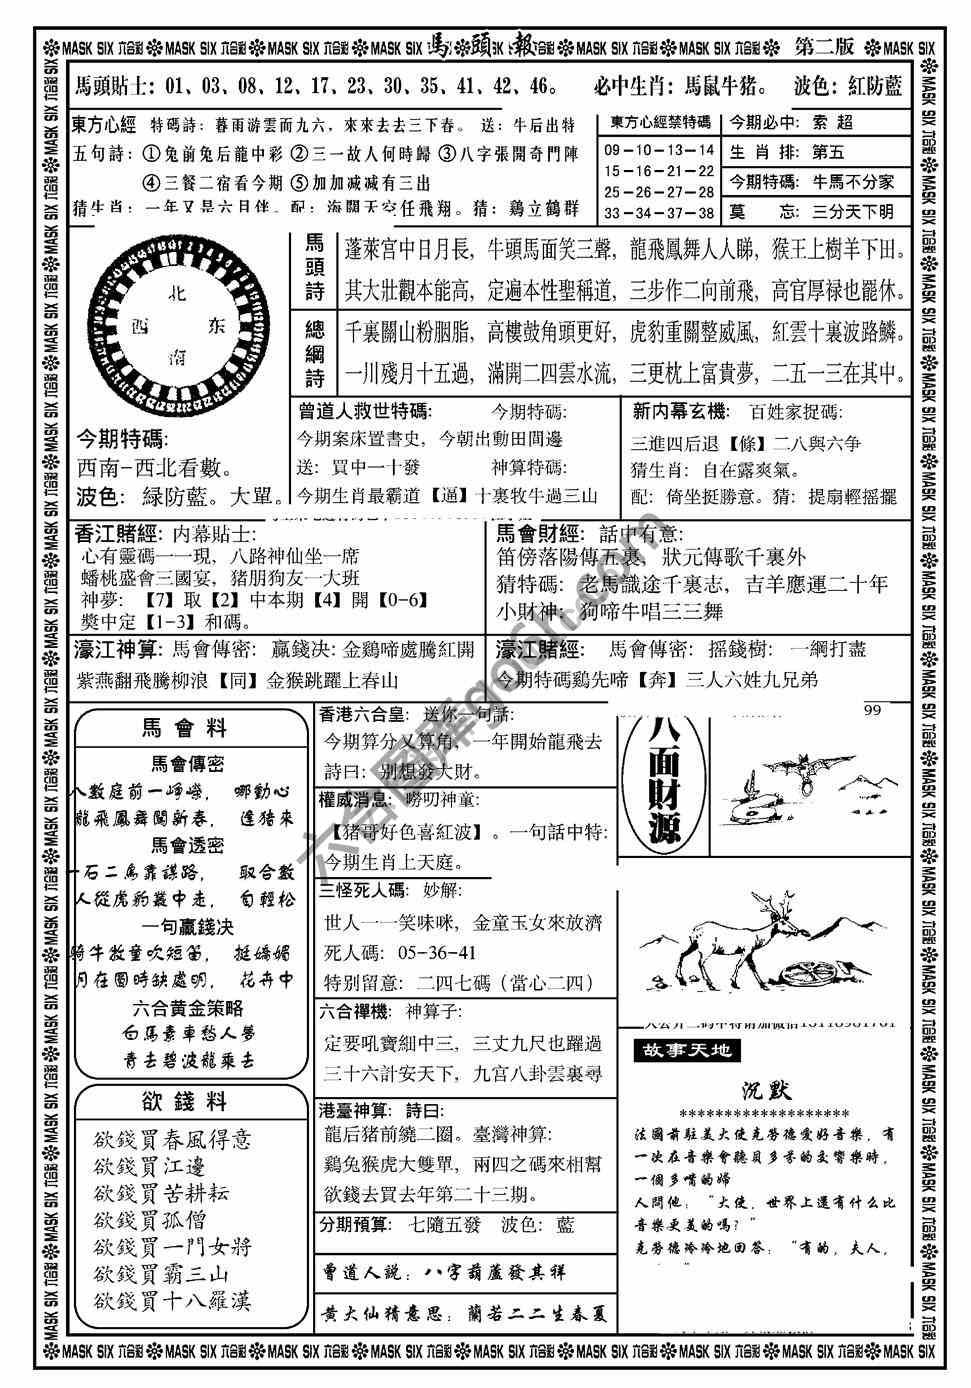 MASK SIX 六合彩 MASK SIX 六合彩 MASK SIX 六合彩 MASK SIX 馬頭報 六合彩 MASK SIX 六合彩 第二版 MASK SIX
馬頭貼士：01、03、08、12、17、23、30、35、41、42、46。 必中生肖：馬鼠牛猪。 波色：紅防藍
東方心經 特碼詩：暮雨游雲而九六，來來去去三下春。 送：牛后出特
五句詩：①兔前兔后龍中彩 ②三一故人何時歸 ③八字張開奇門陣
④三餐二宿看今期 ⑤加加减减有三出
猜生肖：一年又是六月伴。配：海闊天空任飛翔。猜：鷄立鶴群
東方心經禁特碼
09－10－13－14
15－16－21－22
25－26－27－28
33－34－37－38
今期必中：索 超
生 肖 排：第五
今期特碼：牛馬不分家
莫 忘：三分天下明
北
西 东
南
今期特碼：
西南-西北看數。
波色：緑防藍。大單。
馬頭詩
蓬萊宫中日月長，牛頭馬面笑三聲，龍飛鳳舞人人睇，猴王上樹羊下田。
其大壯觀本能高，定遍本性聖稱道，三步作二向前飛，高官厚禄也罷休。
總綱詩
千裏關山粉胭脂，高樓鼓角頭更好，虎豹重關整威風，紅雲十裏波路鱗。
一川殘月十五過，滿開二四雲水流，三更枕上富貴夢，二五一三在其中。
曾道人救世特碼： 今期特碼：
今期案床置書史，今朝出動田間邊
送：買中一十發 神算特碼：
今期生肖最霸道【逼】十裏牧牛過三山
新内幕玄機：百姓家捉碼：
三進四后退【條】二八與六争
猜生肖：自在露爽氣。
配：倚坐挺勝意。猜：提扇輕摇擺
香江賭經：内幕貼士：
心有靈碼一一現，八路神仙坐一席
蟠桃盛會三國宴，猪朋狗友一大班
神夢：【7】取【2】中本期【4】開【0-6】
獎中定【1-3】和碼。
馬會財經：話中有意：
笛傍落陽傳百裏，狀元傳歌千裏外
猜特碼：老馬識途千裏志，吉羊應運二十年
小財神：狗啼牛唱三三舞
濠江神算：馬會傳密：贏錢决：金鷄啼處騰紅開
紫燕翻飛騰柳浪【同】金猴跳躍上春山
濠江賭經： 馬會傳密：摇錢樹：一綱打盡
今期特碼鷄先啼【奔】三人六姓九兄弟
馬會料
馬會傳密
八數庭前一崢嶸，哪動心
龍飛鳳舞闖新春，逢猪來
馬會透密
一石二鳥靠謀路，取合數
人從虎豹叢中走，旬輕松
一句贏錢决
騎牛牧童吹短笛，挺嬌媚
月在圓時缺處明，花卉中
六合黄金策略
白馬素車愁人夢
青去碧波龍乘去
欲錢料
欲錢買春風得意
欲錢買江邊
欲錢買苦耕耘
欲錢買孤僧
欲錢買一門女將
欲錢買霸三山
欲錢買十八羅漢
香港六合皇：送你一句話：
今期算分又算角，一年開始龍飛去
詩曰：别想發大財。
權威消息：嘮叨神童：
【猪哥好色喜紅波】。一句話中特：
今期生肖上天庭。
三怪死人碼：妙解：
世人一一笑味咪，金童玉女來放濟
死人碼：05-36-41
特别留意：二四七碼（當心二四）
六合禪機：神算子：
定要吼寶細中三，三丈九尺也躍過
三十六計安天下，九宫八卦雲裏尋
港臺神算：詩曰：
龍后猪前繞二圈。臺灣神算：
鷄兔猴虎大雙單，兩四之碼來相幫
欲錢去買去年第二十三期。
分期預算：七隨五發 波色：藍
曾道人説：八字葫蘆發其祥
黄大仙猜意思：蘭若二二生春夏
八面財源
99
故事天地
沉默
*******************
法國前駐美大使克勞德愛好音樂，有
一次在音樂會聽貝多芬的交響樂時，
一個多嘴的婦
人問他：“大使，世界上還有什么比
音樂更美的嗎？”
克勞德冷冷地回答：“有的，夫人，
六合图库go6h.com
MASK SIX 六合彩 MASK SIX 六合彩 MASK SIX 六合彩 MASK SIX 六合彩 MASK SIX 六合彩 MASK SIX 六合彩 MASK SIX 六合彩 MASK SIX 六合彩 MASK SIX